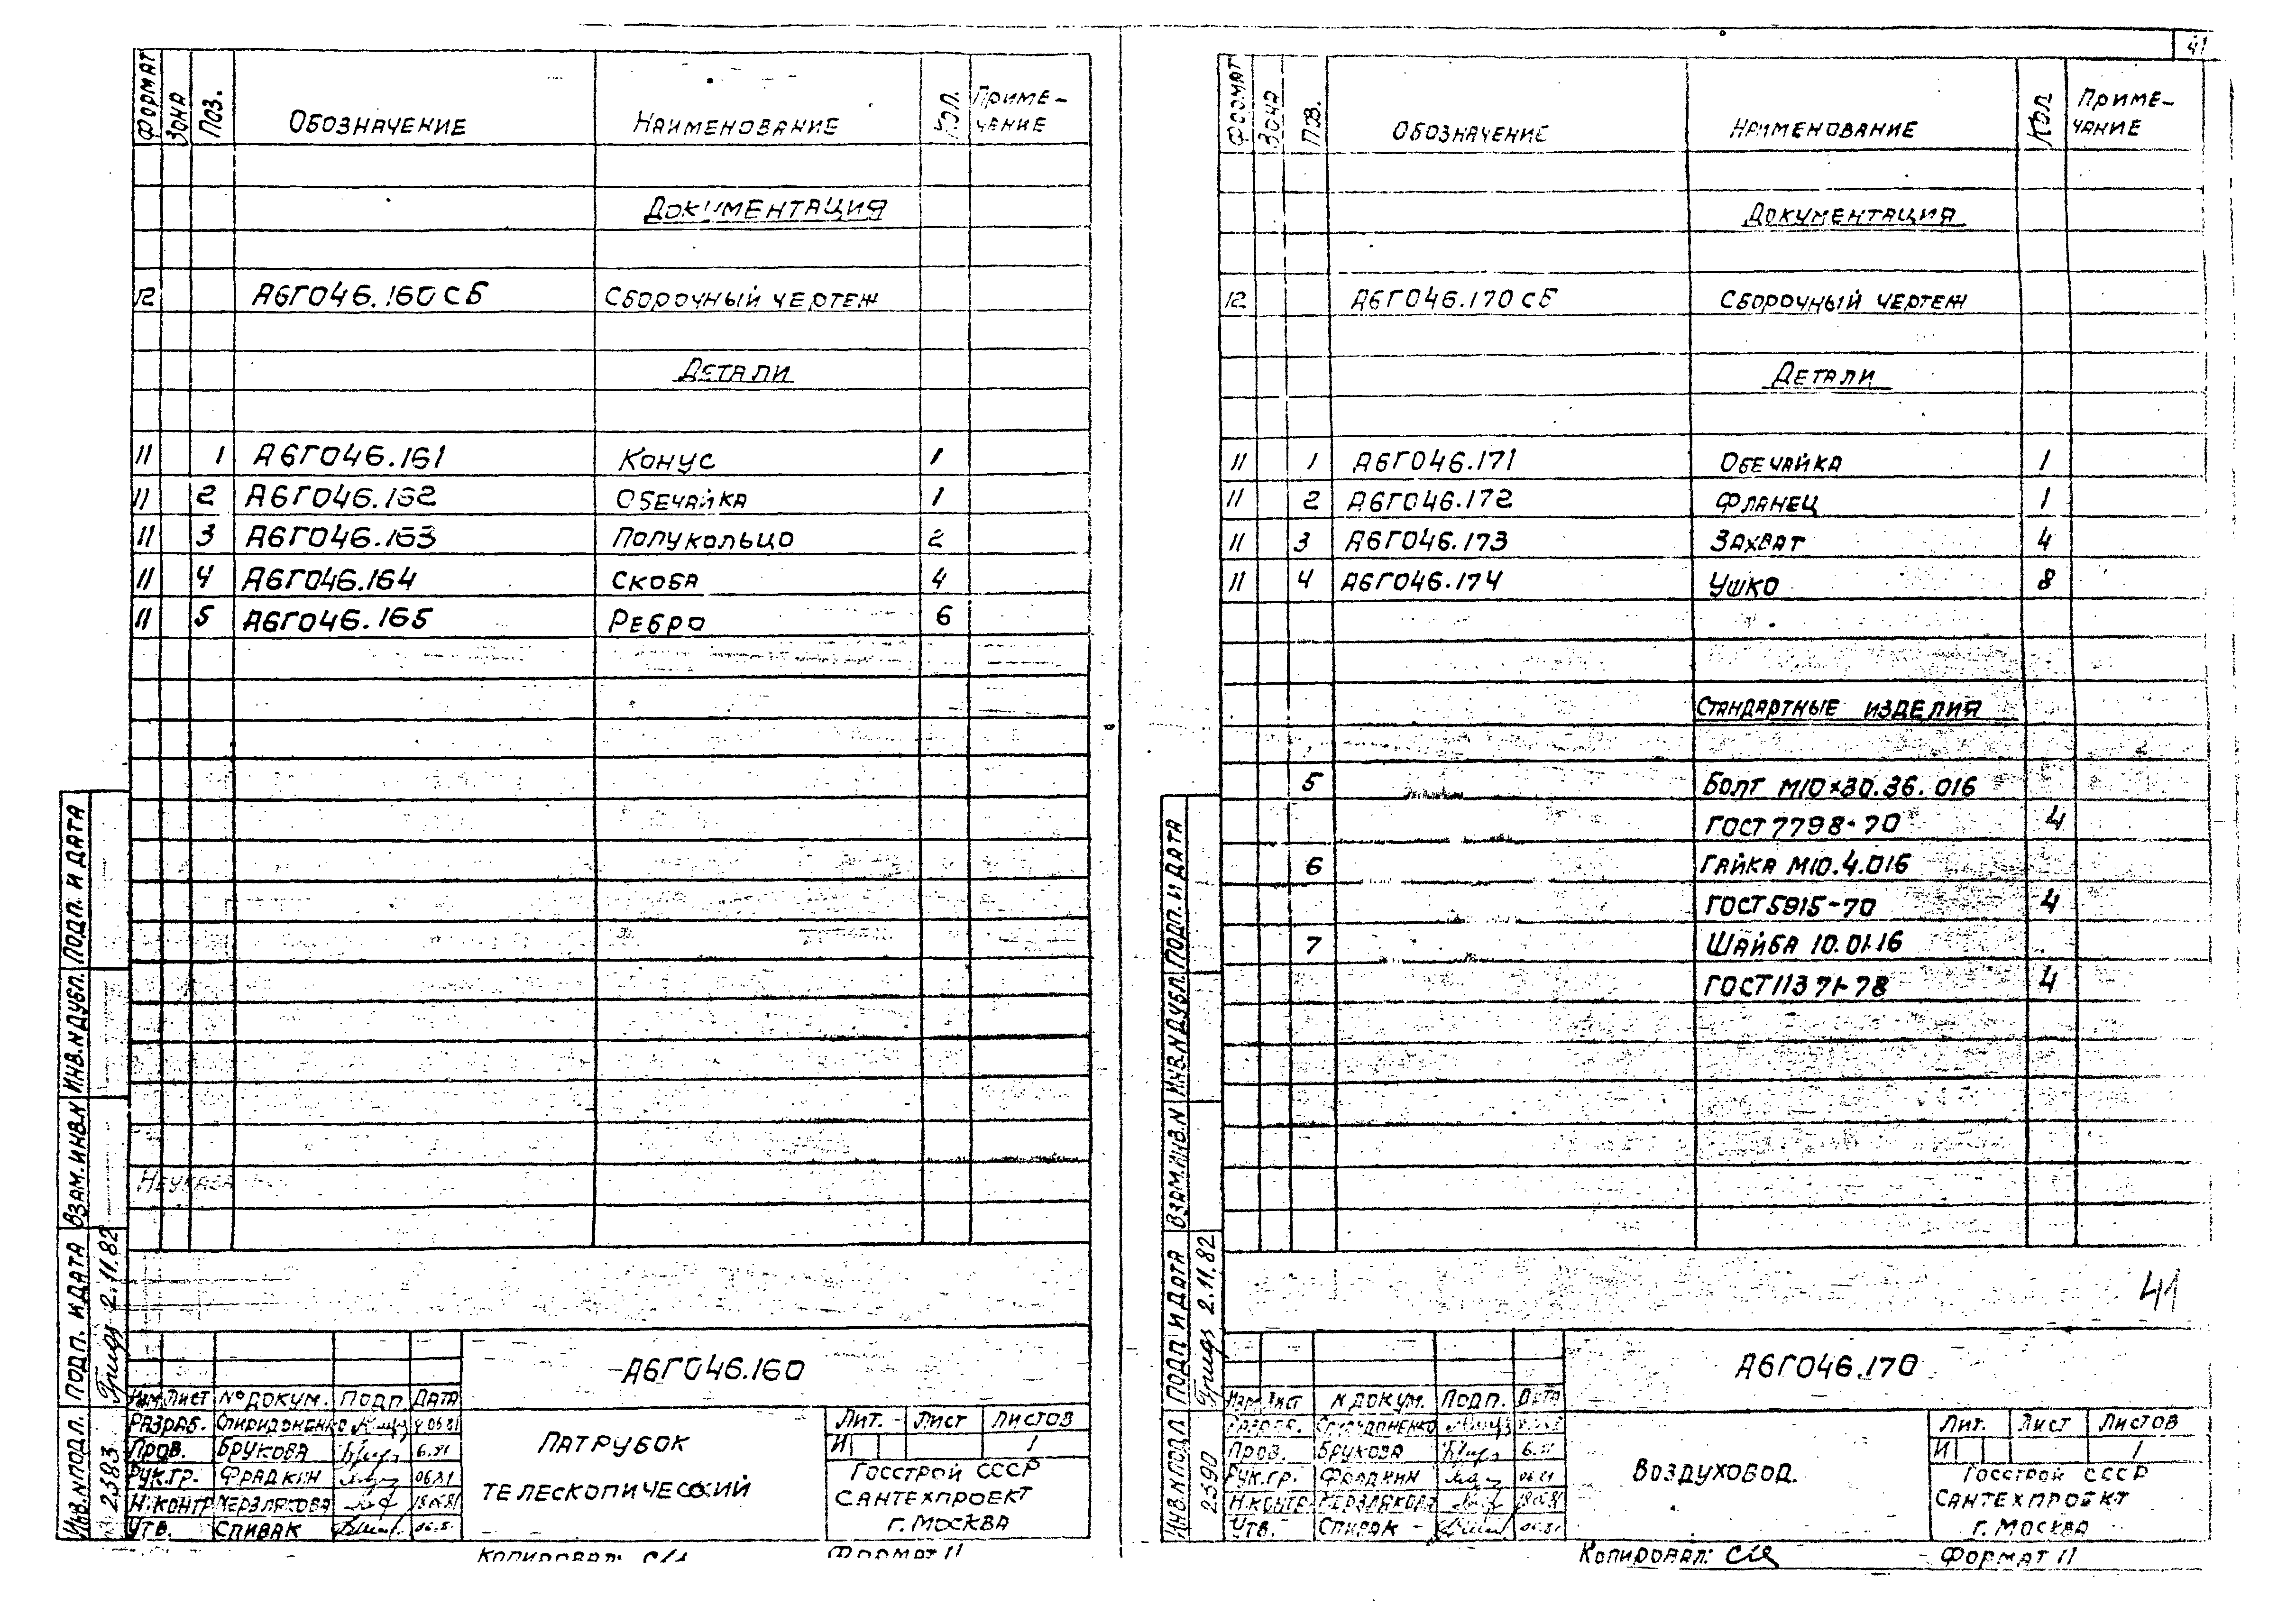 41
ФОРМАТ ЗОНА ПОЗ. ОБОЗНАЧЕНИЕ НАИМЕНОВАНИЕ КОЛ. ПРИМЕ-
ЧАНИЕ
ДОКУМЕНТАЦИЯ
12 А6Г046.160СБ СБОРОЧНЫЙ ЧЕРТЕЖ
ДЕТАЛИ
11 1 А6Г046.161 КОНУС 1
11 2 А6Г046.162 ОБЕЧАЙКА 1
11 3 А6Г046.163 ПОЛУКОЛЬЦО 2
11 4 А6Г046.164 СКОБА 4
11 5 А6Г046.165 РЕБРО 6
ПОДП. И ДАТА
ИНВ.N ДУБЛ.
ВЗАМ.ИНВ.N
ПОДП. И ДАТА 2.11.82
ИНВ.N ПОДЛ. 2383
А6Г046.160
ИЗМ. ЛИСТ N° ДОКУМ. ПОДП. ДАТА
РАЗРАБ. СПИРИДОНЕНКО
ПРОВ. БРУКОВА 6.81
РУК.ГР. ФРАДКИН 06.81
Н.КОНТР. МЕРЗЛЯКОВА
УТВ. СПИВАК
ПАТРУБОК
ТЕЛЕСКОПИЧЕСКИЙ
ЛИТ. ЛИСТ ЛИСТОВ
И 1
ГОССТРОЙ СССР
САНТЕХПРОЕКТ
г. МОСКВА
КОПИРОВАЛ: ФОРМАТ 11
ФОРМАТ ЗОНА ПОЗ. ОБОЗНАЧЕНИЕ НАИМЕНОВАНИЕ КОЛ. ПРИМЕ-
ЧАНИЕ
ДОКУМЕНТАЦИЯ
12 А6Г046.170СБ СБОРОЧНЫЙ ЧЕРТЕЖ
ДЕТАЛИ
11 1 А6Г046.171 ОБЕЧАЙКА 1
11 2 А6Г046.172 ФЛАНЕЦ 1
11 3 А6Г046.173 ЗАХВАТ 4
11 4 А6Г046.174 УШКО 8
СТАНДАРТНЫЕ ИЗДЕЛИЯ
5 БОЛТ М10×30.36.016
ГОСТ 7798-70 4
6 ГАЙКА М10.4.016
ГОСТ 5915-70 4
7 ШАЙБА 10.01.16
ГОСТ 11371-78 4
41
ПОДП. И ДАТА
ИНВ.N ДУБЛ.
ВЗАМ.ИНВ.N
ПОДП. И ДАТА 2.11.82
ИНВ.N ПОДЛ. 2390
А6Г046.170
ИЗМ. ЛИСТ N ДОКУМ. ПОДП. ДАТА
РАЗРАБ. СПИРИДОНЕНКО
ПРОВ. БРУКОВА 6.81
РУК.ГР. ФРАДКИН 06.81
Н.КОНТР. МЕРЗЛЯКОВА
УТВ. СПИВАК
ВОЗДУХОВОД.
ЛИТ. ЛИСТ ЛИСТОВ
И 1
ГОССТРОЙ СССР
САНТЕХПРОЕКТ
г. МОСКВА
КОПИРОВАЛ: ФОРМАТ 11